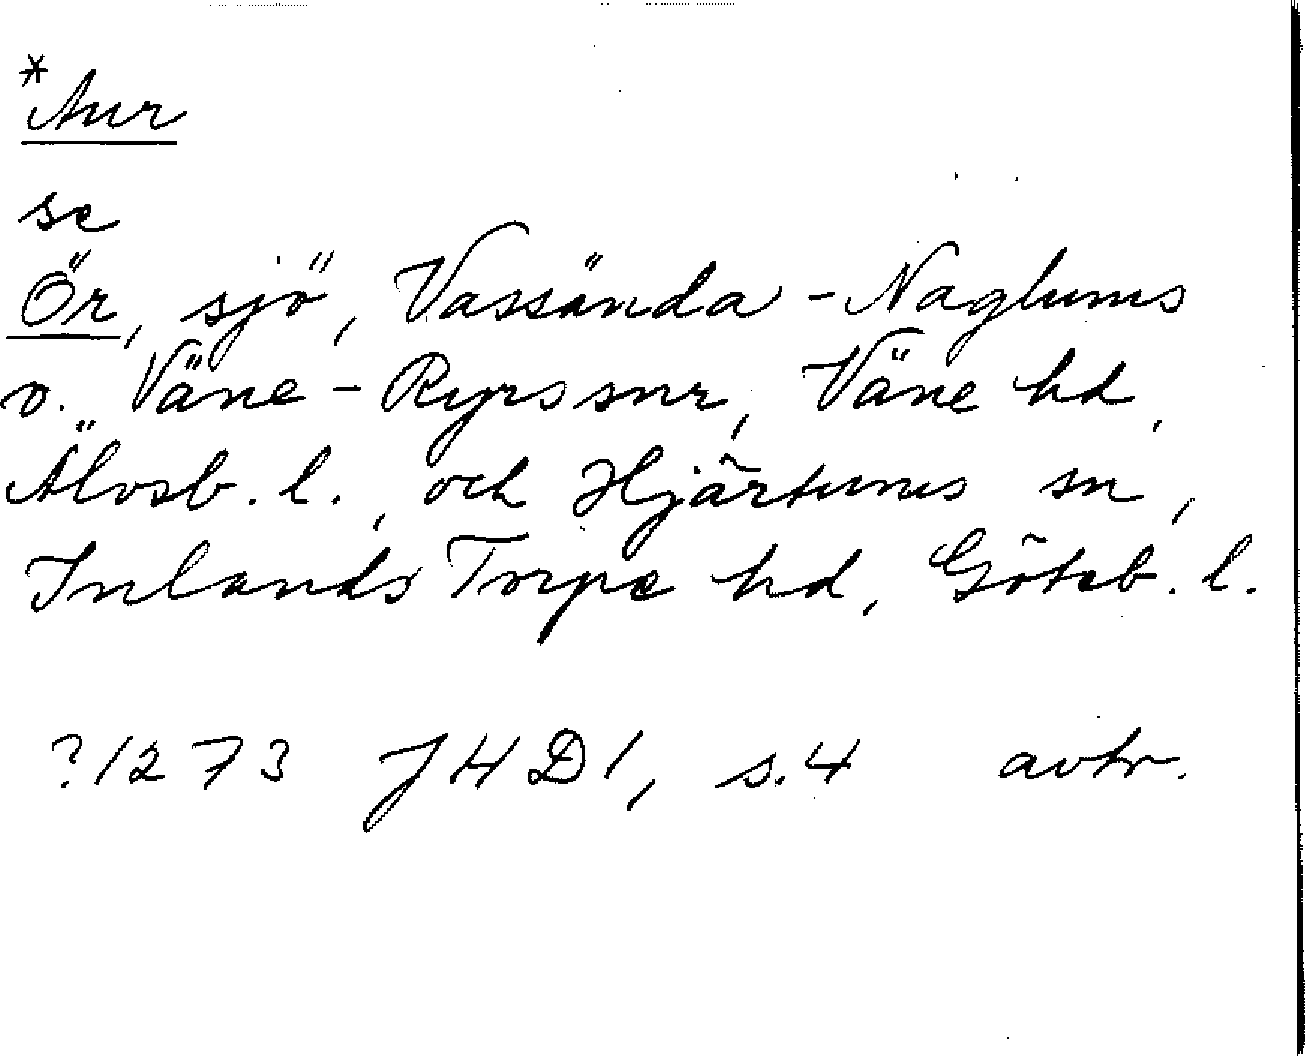 *Aur
se
Ör, sjö, Vassända-Naglums
o. Väne-Ryrs snr, Väne hd,
Älvsb. l., och Hjärtums sn,
Inlands Torpe hd, Göteb. l.
?1273 JHD1, s.4 avtr.